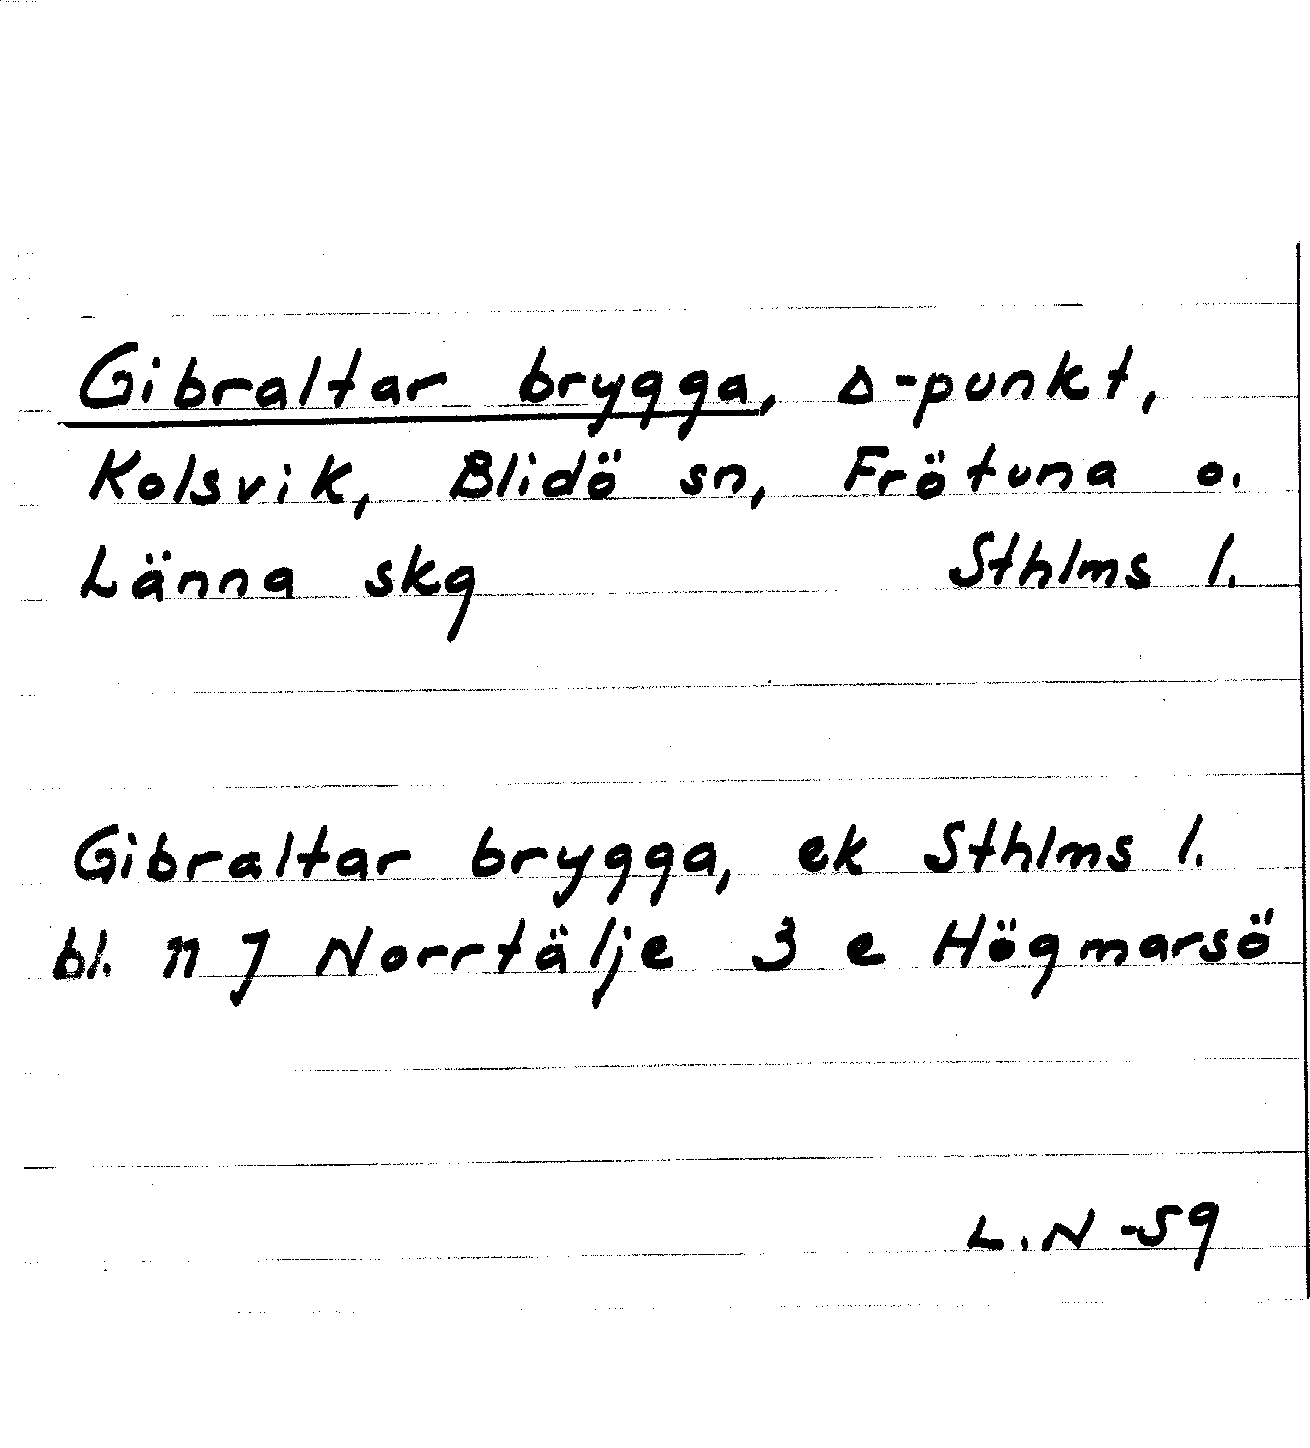 Gibraltar brygga, Δ-punkt,
Kolsvik, Blidö sn, Frötuna o.
Länna skg Sthlms l.
Gibraltar brygga, ek Sthlms l.
bl. 11 J Norrtälje 3 e Högmarsö
L.N -59